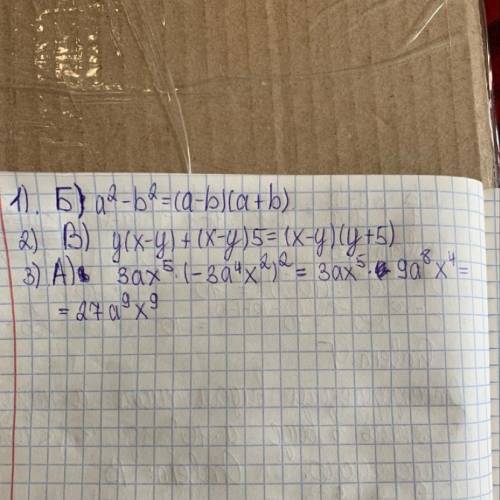 1). Б) a² - b² = (a-b)(a+b)
2) В) y(x-y) + (x-y)5 = (x-y)(y+5)
3) А) 3ax⁵ · (-3a⁴x²)² = 3ax⁵ · 9a⁸x⁴ =
= 27a⁹x⁹